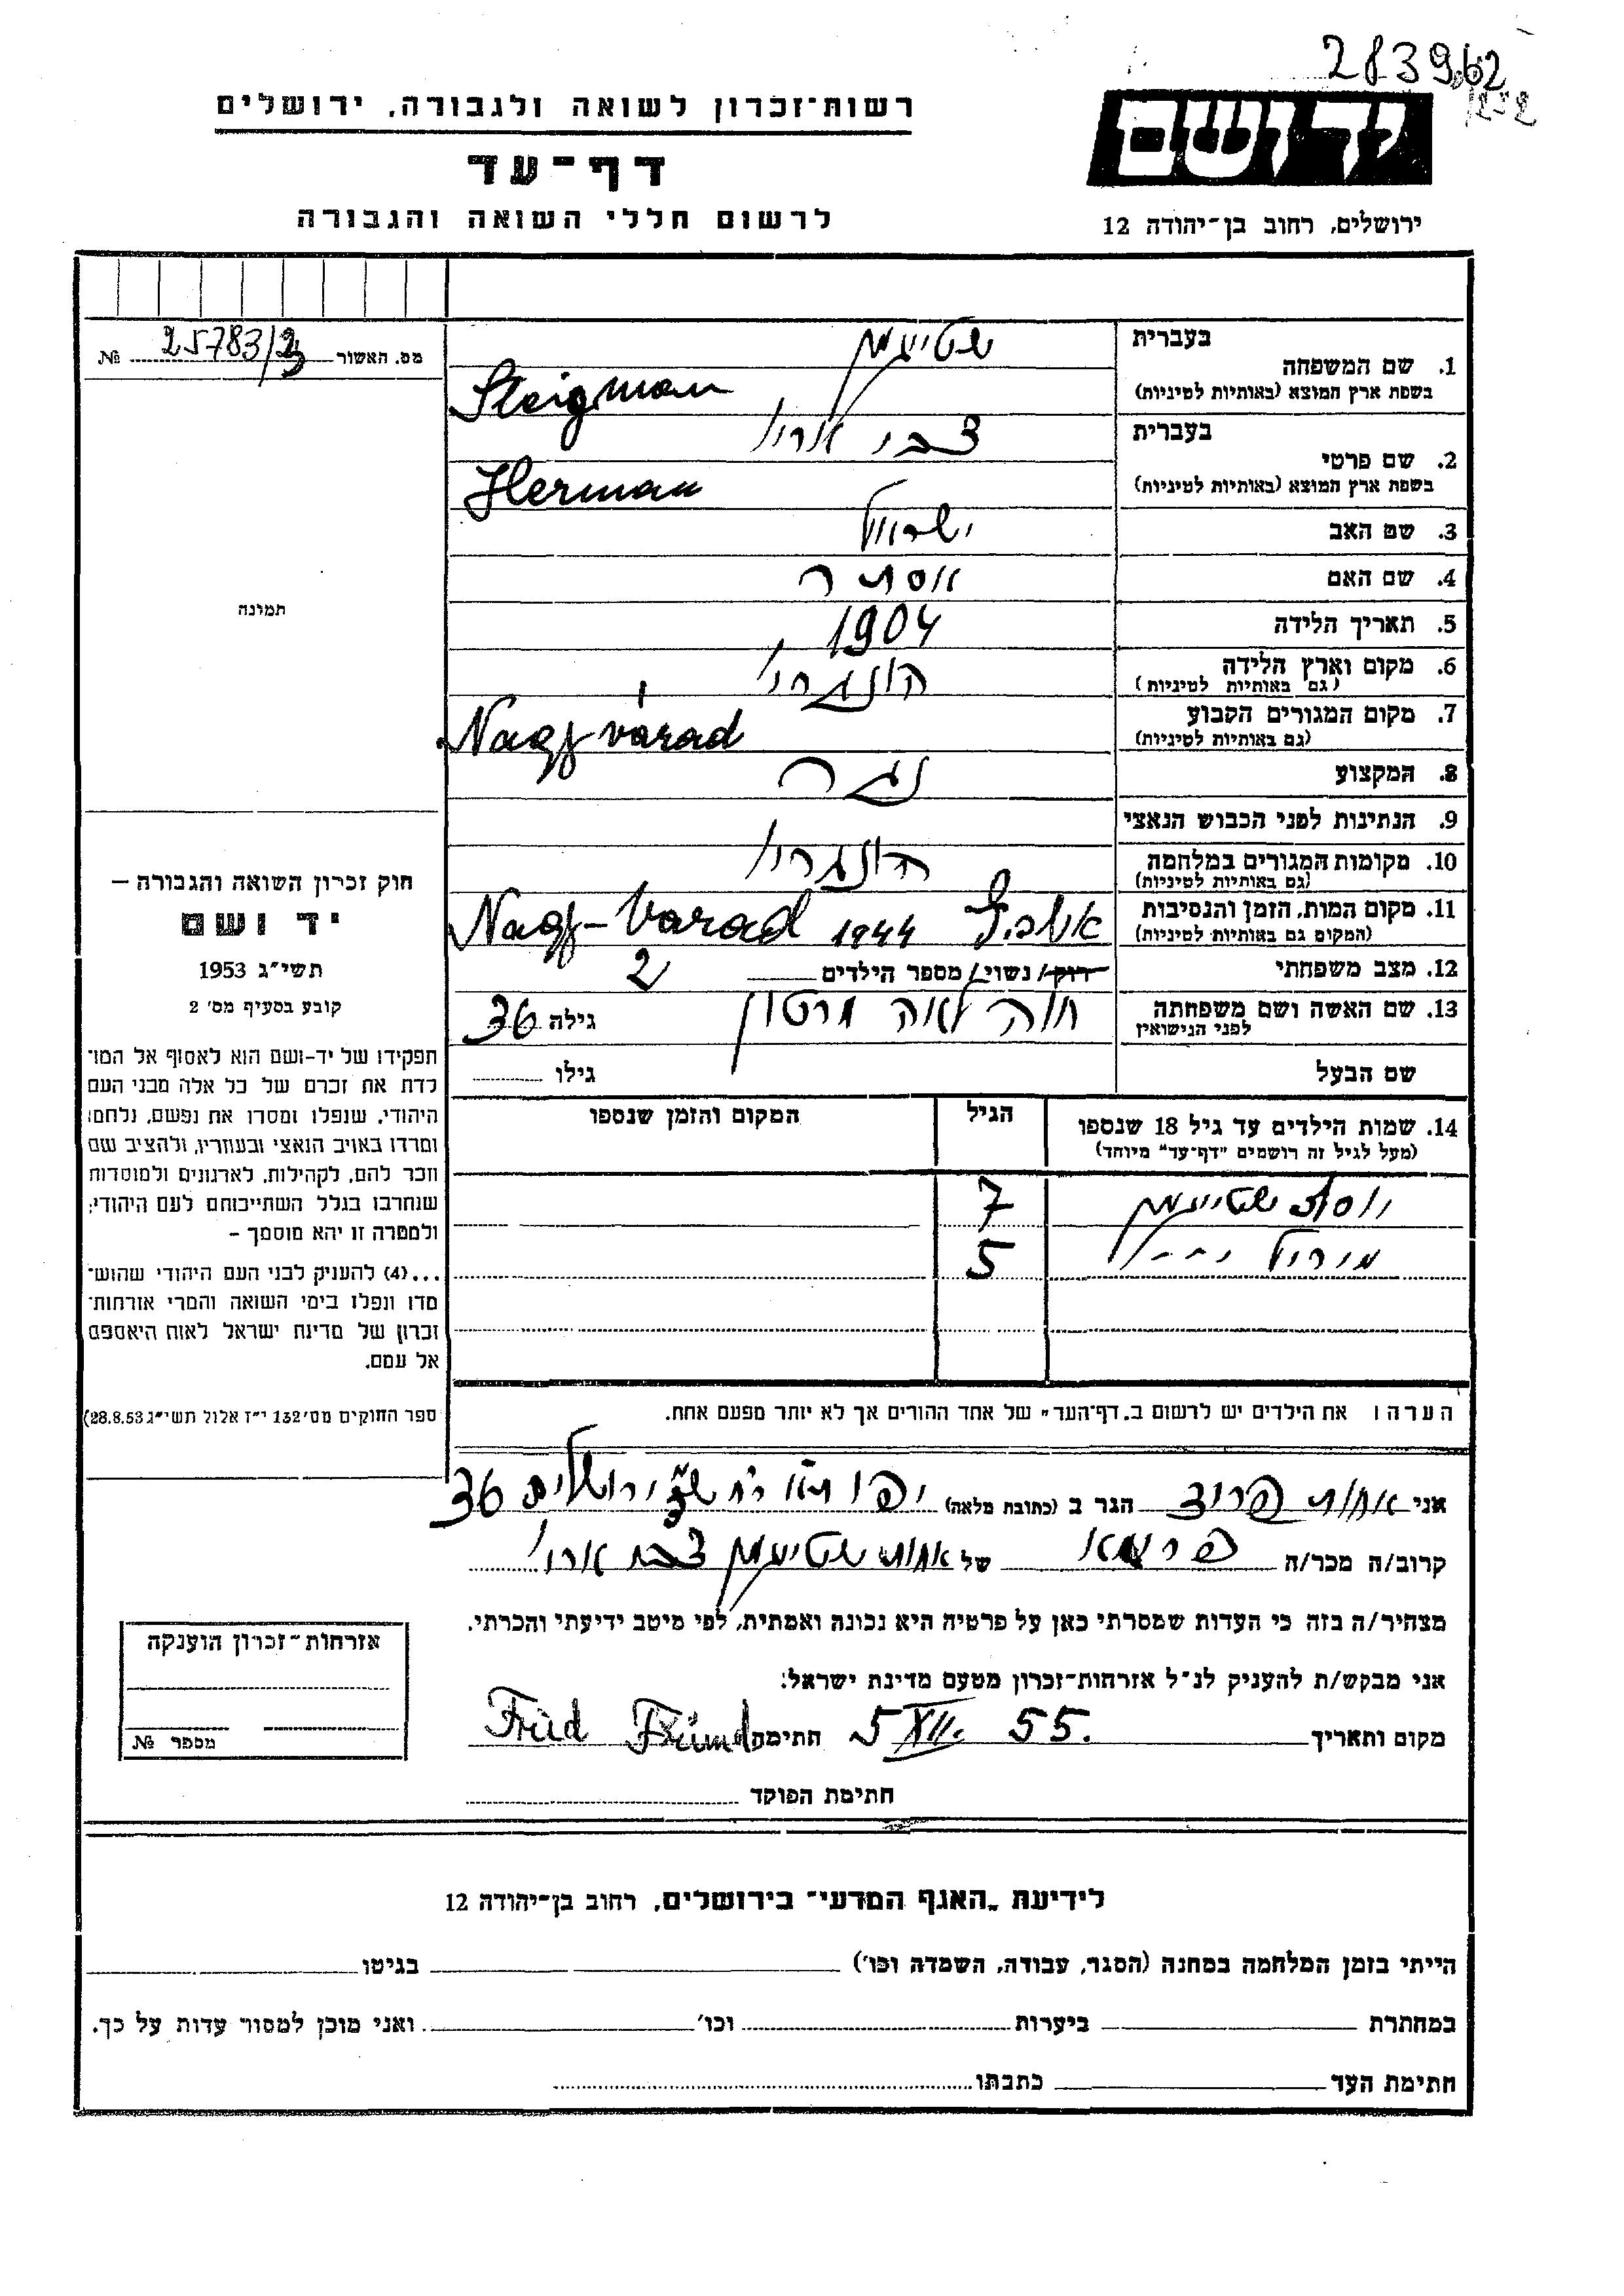 283962
252
רשות־זכרון לשואה ולגבורה, ירושלים
דף־עד
לרשום חללי השואה והגבורה
יד ושם
ירושלים, רחוב בן־יהודה 12
מס. האשור 25783/2 №
תמונה
חוק זכרון השואה והגבורה –
יד ושם
תשי״ג 1953
קובע בסעיף מס׳ 2
תפקידו של יד-ושם הוא לאסוף אל המו־
לדת את זכרם של כל אלה מבני העם
היהודי, שנפלו ומסרו את נפשם, נלחמו
ומרדו באויב הנאצי ובעוזריו, ולהציב שם
וזכר להם, לקהילות, לארגונים ולמוסדות
שנחרבו בגלל השתייכותם לעם היהודי;
ולמטרה זו יהא מוסמך –
...(4) להעניק לבני העם היהודי שהוש־
מדו ונפלו בימי השואה והמרי אזרחות־
זכרון של מדינת ישראל לאות היאספם
אל עמם.
ספר החוקים מס׳ 132 י״ז אלול תשי״ג 28.8.53)
בעברית
1. שם המשפחה שטיגמן
בשפת ארץ המוצא (באותיות לטיניות) Steigman
בעברית
2. שם פרטי צבי אריה
בשפת ארץ המוצא (באותיות לטיניות) Herman
3. שם האב ישראל
4. שם האם אסתר
5. תאריך הלידה 1904
6. מקום וארץ הלידה הונגריה
(גם באותיות לטיניות)
7. מקום המגורים הקבוע Nagy várad
(גם באותיות לטיניות)
8. המקצוע נגר
9. הנתינות לפני הכבוש הנאצי
10. מקומות המגורים במלחמה הונגריה
(גם באותיות לטיניות)
11. מקום המות, הזמן והנסיבות 1944 Nagy-Varad
(המקום גם באותיות לטיניות)
12. מצב משפחתי רוק/ נשוי/ מספר הילדים 2
13. שם האשה ושם משפחתה חוה לאה מרטון גילה 36
לפני הנישואין
שם הבעל גילו
14. שמות הילדים עד גיל 18 שנספו הגיל המקום והזמן שנספו
(מעל לגיל זה רושמים ״דף־עד״ מיוחד)
שטיגמן 7
5
הערה: את הילדים יש לרשום ב„דף־העד״ של אחד ההורים אך לא יותר מפעם אחת.
אני הגר ב (כתובת מלאה) ירושלים 36
קרוב/ה מכר/ה של שטיגמן
מצהיר/ה בזה כי העדות שמסרתי כאן על פרטיה היא נכונה ואמתית, לפי מיטב ידיעתי והכרתי.
אני מבקש/ת להעניק לנ״ל אזרחות־זכרון מטעם מדינת ישראל:
מקום ותאריך 5 XII. 55. חתימה
חתימת הפוקד
אזרחות־זכרון הוענקה
מספר №
לידיעת „האגף המדעי״ בירושלים, רחוב בן־יהודה 12
הייתי בזמן המלחמה במחנה (הסגר, עבודה, השמדה וכו׳) בגיטו
במחתרת ביערות וכו׳ ואני מוכן למסור עדות על כך.
חתימת העד כתבתו